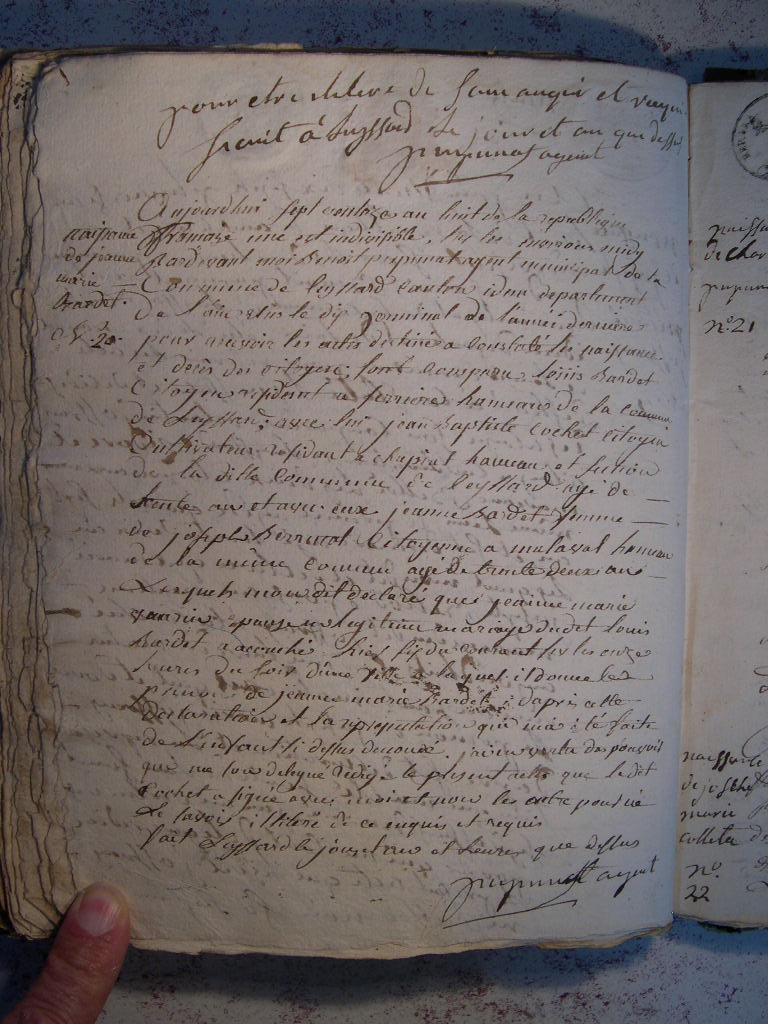 pour etre delivré de
fait à Leyssard le jour et an que dessus
agent
Aujourdhui sept ventose an huit de la republique
française une et indivisible, sur les environs midy
Pardevant moi Benoit agent municipal de la
Commune de Leyssard canton idem departement
de L'ain elus le dix germinal de l'année derniere
pour recevoir les actes destiné a Constaté les naissance
et décès des citoyens, sont comparu Louis Bardet
Citoyen résident a hameaux de la Commune
de Leyssard, avec lui jean Baptiste Cochet citoyen
Cultivateur résidant a hameau et section
de la ditte Commune de Leyssard agé de
trente an et avec eux jeanne Bardet femme
de joseph Citoyenne a hameau
de la même Commune agé de trente deux ans
Lesquels mon dit declaré que jeanne marie
en legitime mariage dudit Louis
Bardet a accouché hier six du courant sur les onze
heures du soir d'une fille a laquel il donne les
prenoms de jeanne marie Bardet; d'après cette
declaration et la representation qui ma été faite
de L'enfant si dessus denomé. j'ai en vertu des pouvoirs
que me son delegué redigé le present acte que ledit
Cochet a signé avec moi et nom les autre pour ne
Le savoir illiteré de ce enquis et requis
fait Leyssard le jour, et heures que dessus
agent
naissance
de jeanne
marie
Bardet.
N° 20.
naissance
de
n° 21
naissance
de joseph
marie
n°
22